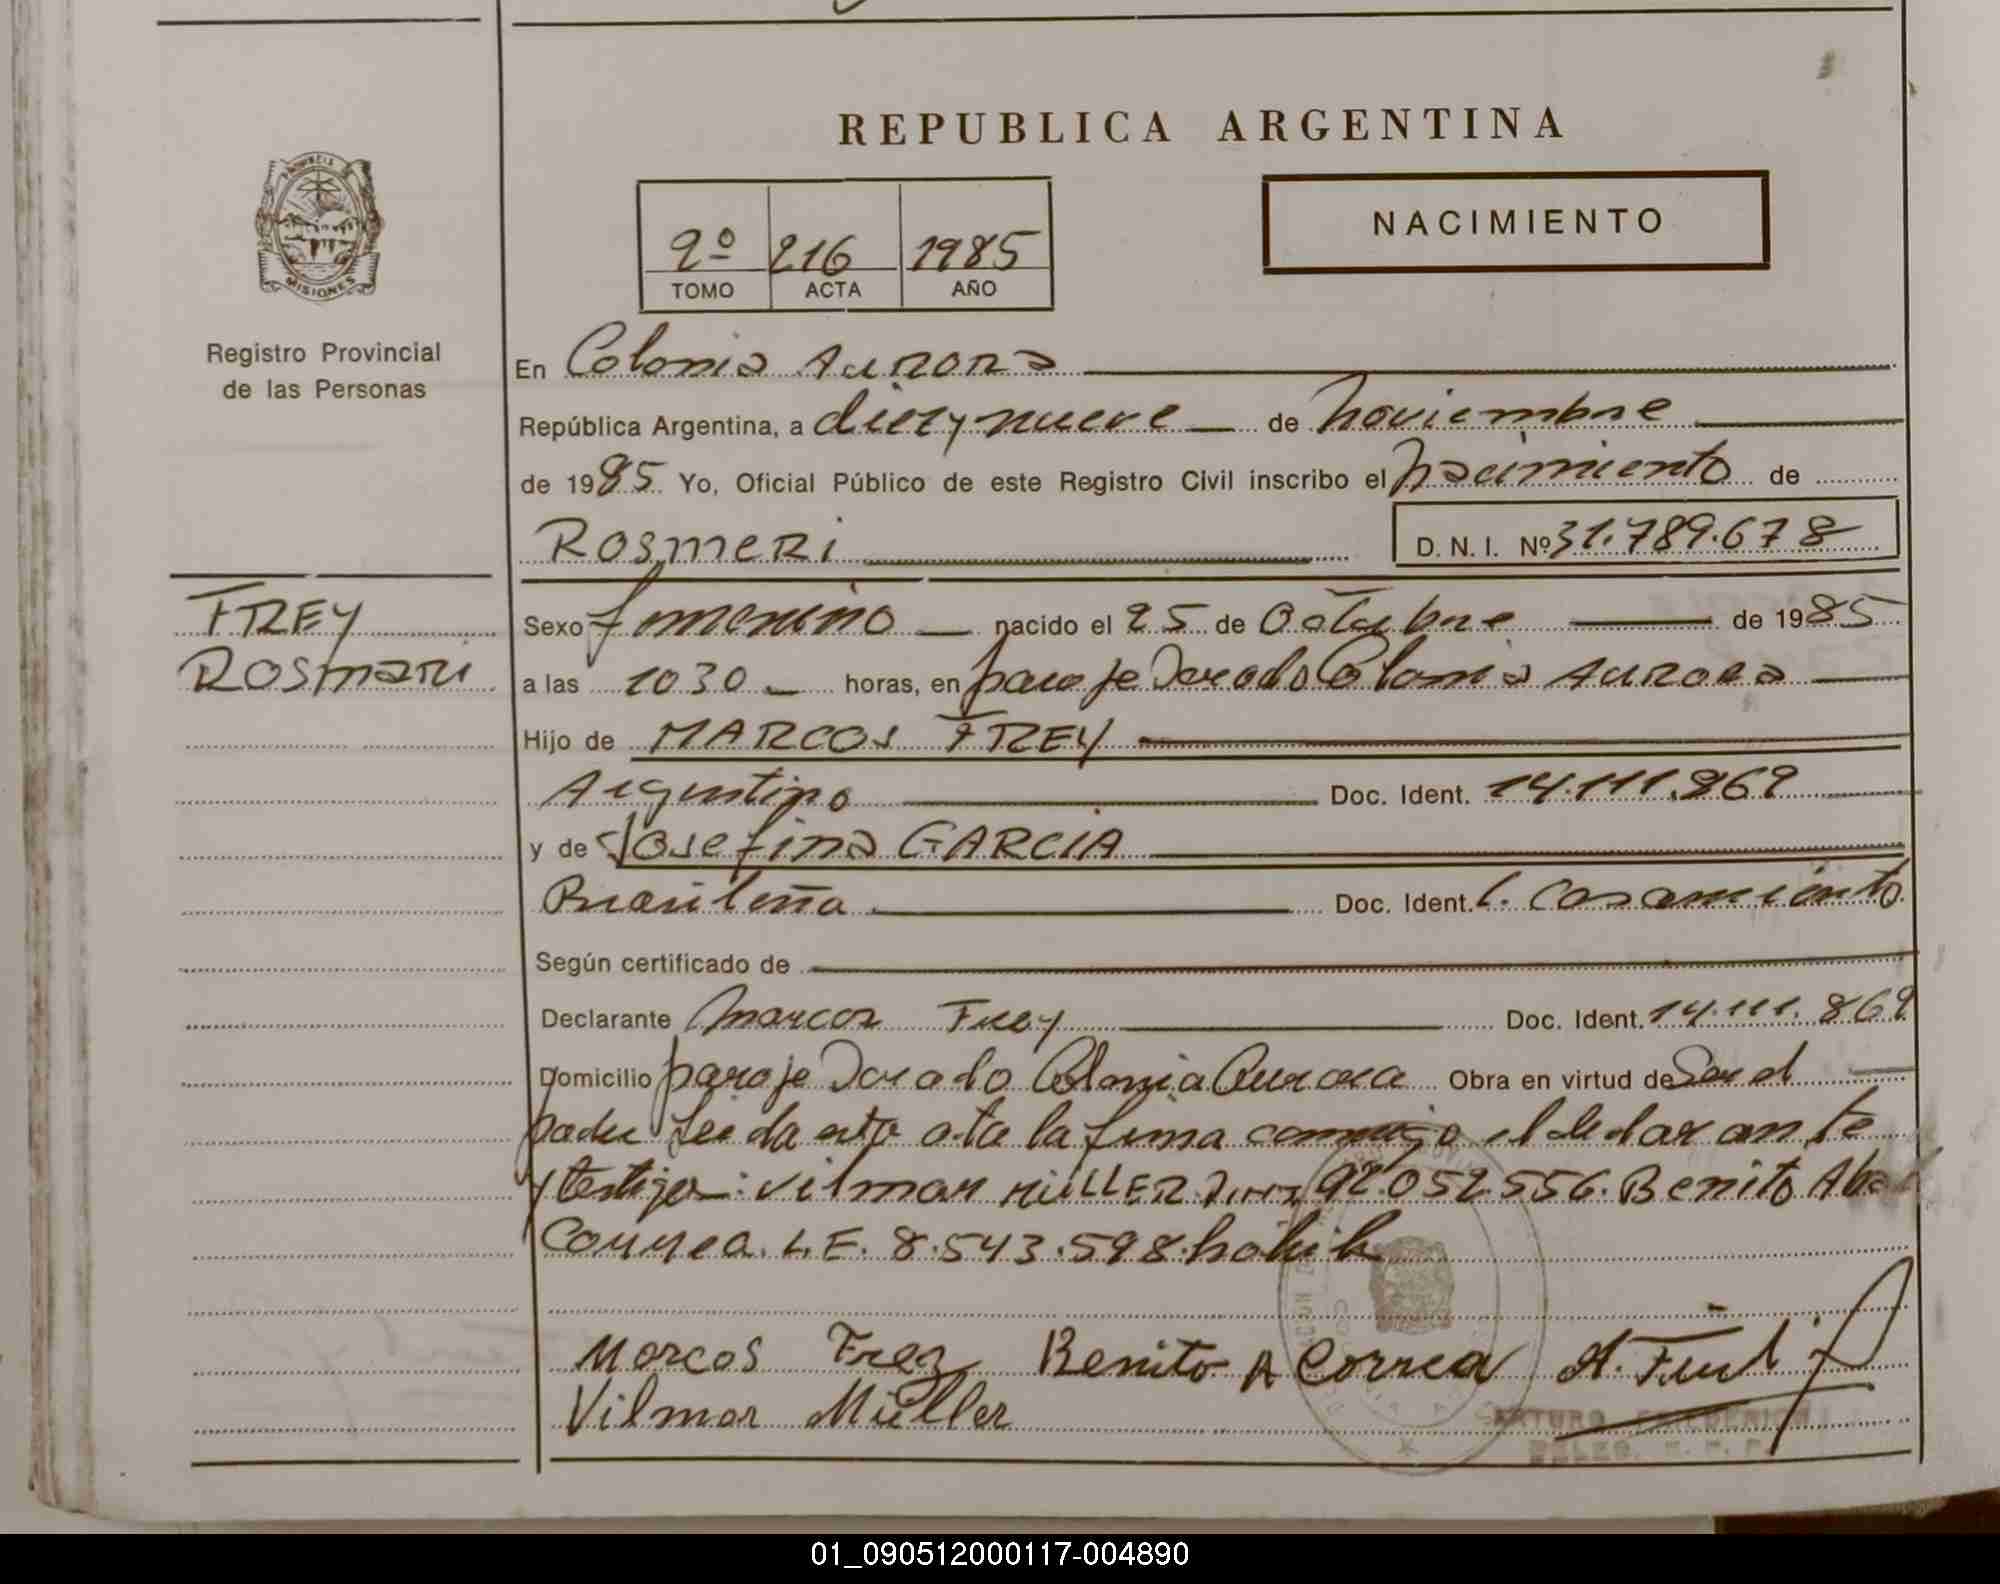 REPUBLICA ARGENTINA
NACIMIENTO
2º 216 1985
TOMO ACTA AÑO
MISIONES
Registro Provincial
de las Personas
En Colonia Aurora
República Argentina, a diez y nueve de noviembre
de 1985 Yo, Oficial Público de este Registro Civil inscribo el nacimiento de
ROSMERI
D. N. I. Nº 31.789.678
FREY
ROSMARI
Sexo femenino nacido el 25 de Octubre de 1985
a las 10 30 horas, en paraje Dorado Colonia Aurora
Hijo de MARCOS FREY
Argentino Doc. Ident. 14.111.869
y de Josefina GARCIA
Brasileña Doc. Ident. L. Casamiento
Según certificado de
Declarante Marcos Frey Doc. Ident. 14.111.869
Domicilio paraje Dorado Colonia Aurora Obra en virtud de Ser el
padre Leida esta acta la firma conmigo el declarante
y testigos: Vilmar MÜLLER 92.052.556. Benito Abel
Correa. L.E. 8.543.598.
Marcos Frey Benito A Correa
Vilmar Müller
ARTURO FRIEDERICH
01_090512000117-004890